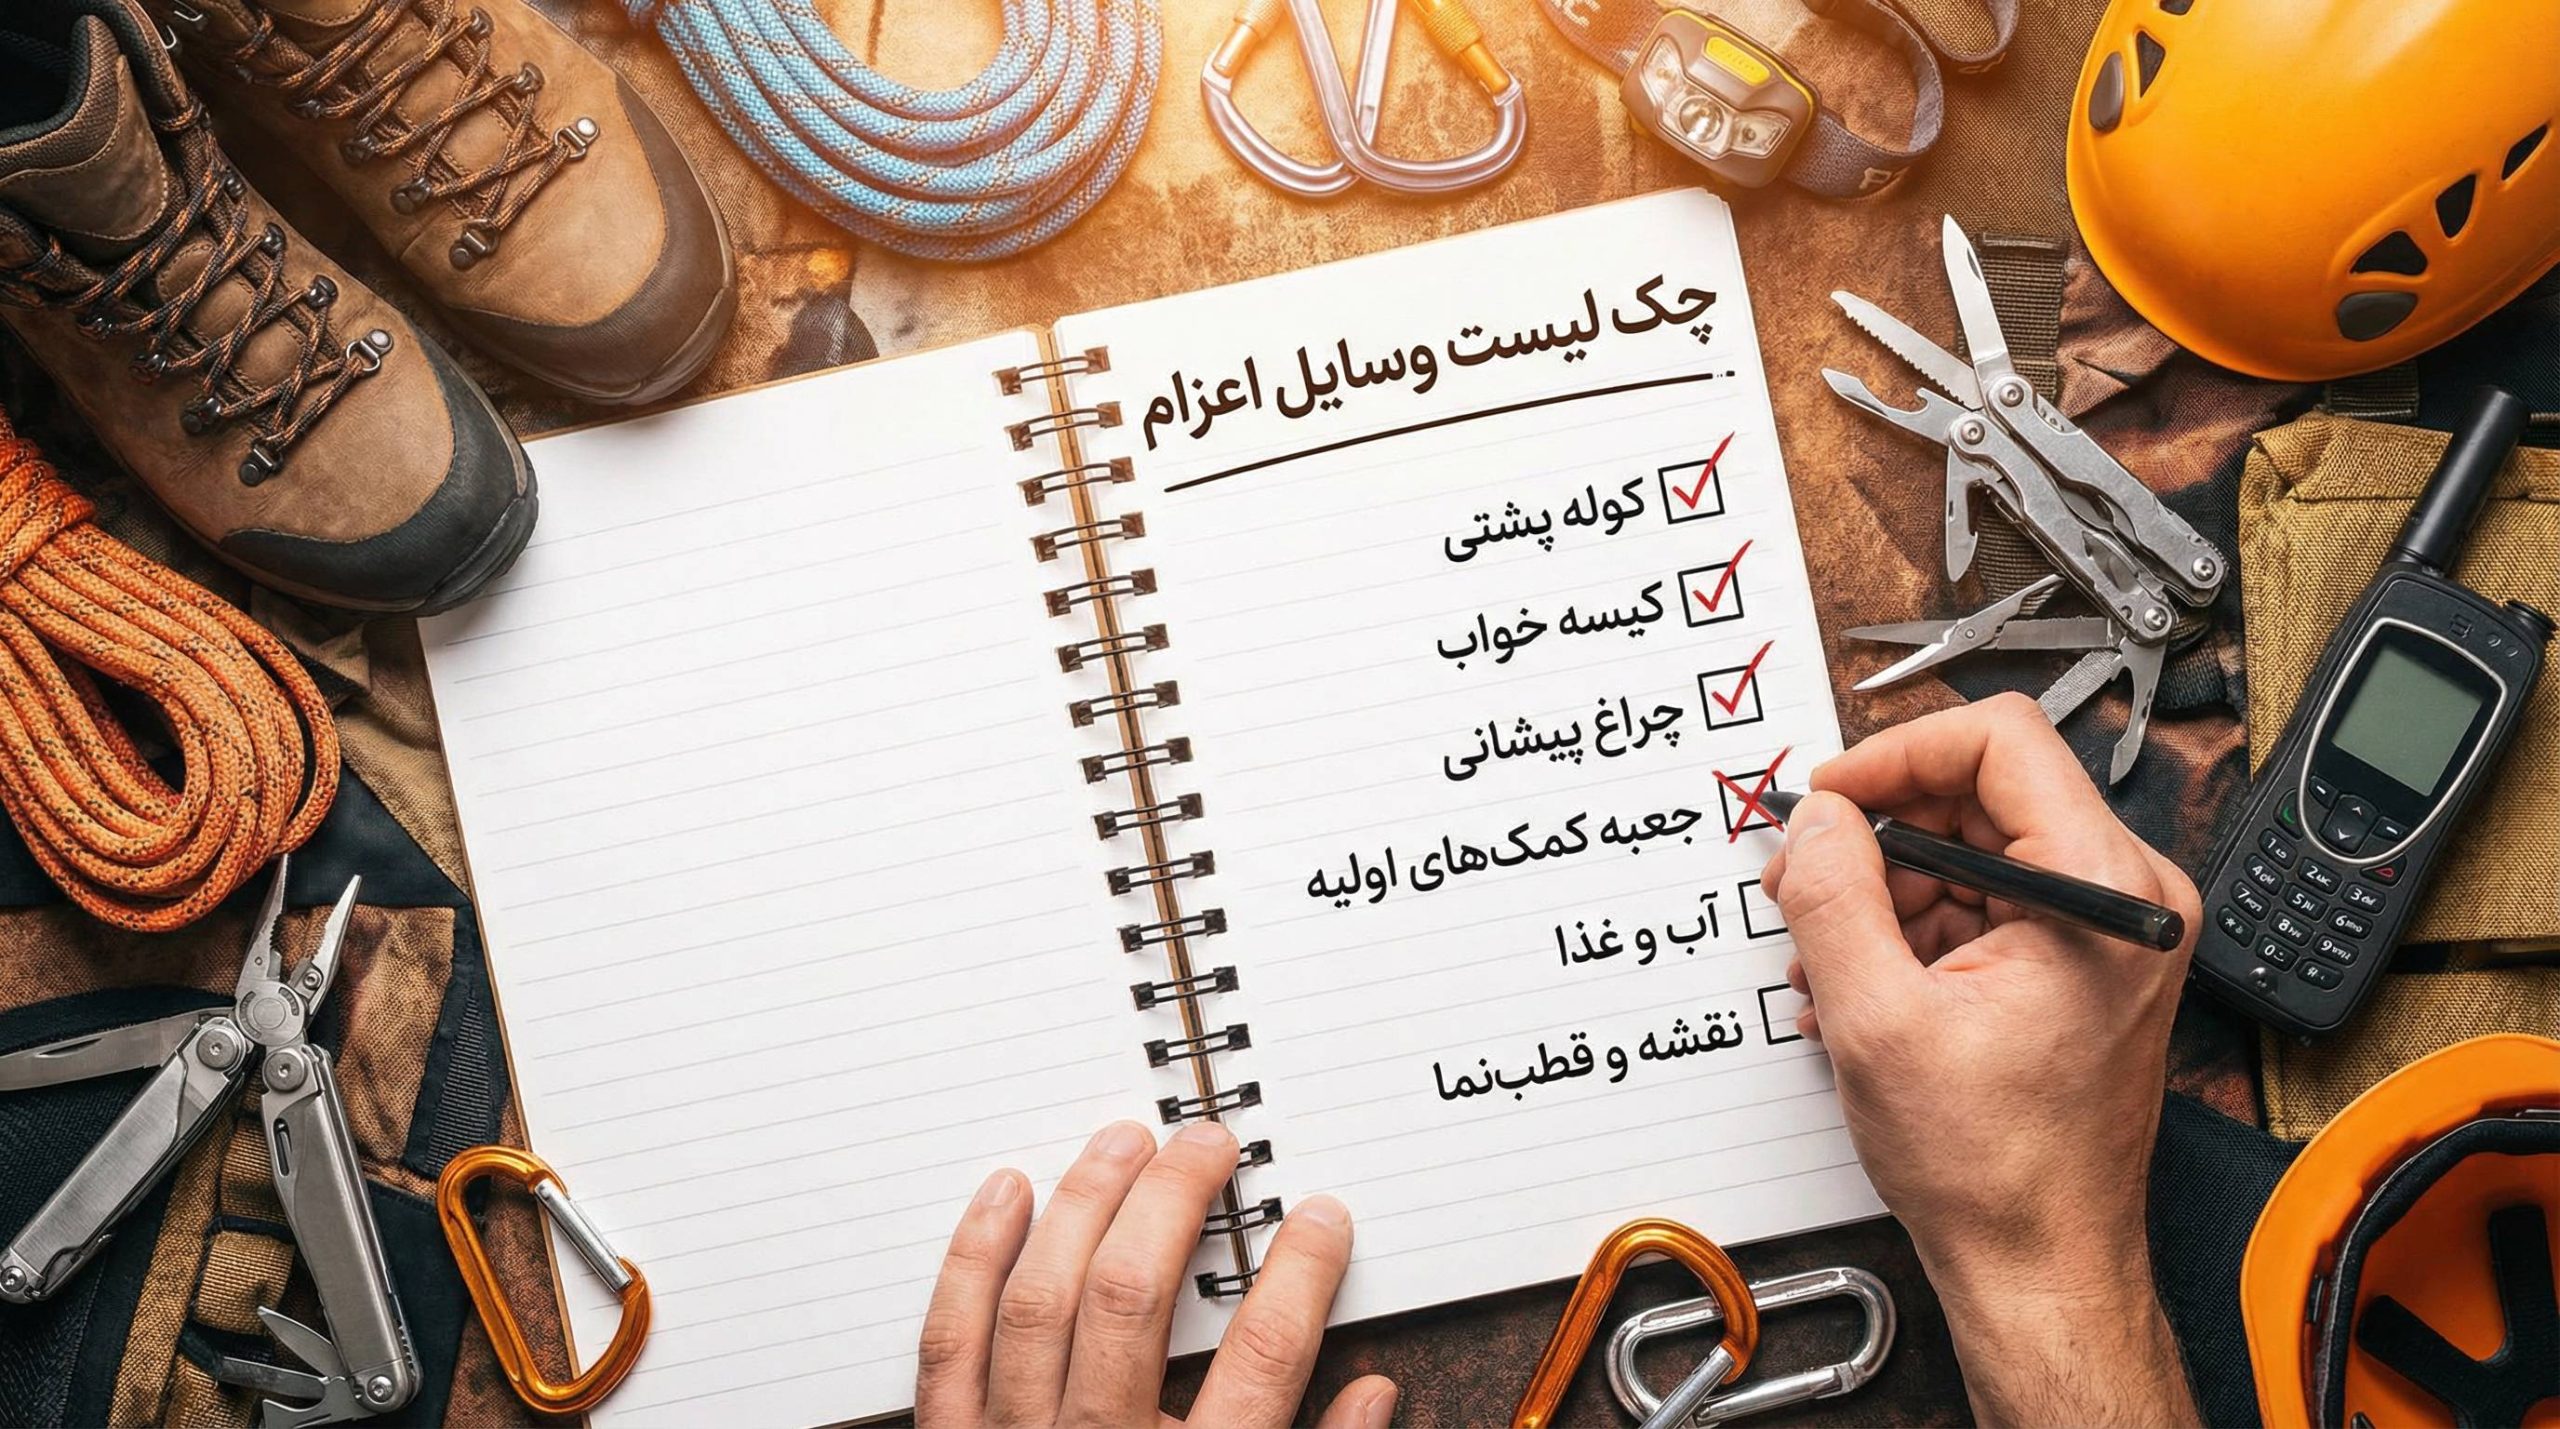 چک لیست وسایل اعزام
کوله پشتی
کیسه خواب
چراغ پیشانی
جعبه کمک‌های اولیه
آب و غذا
نقشه و قطب‌نما